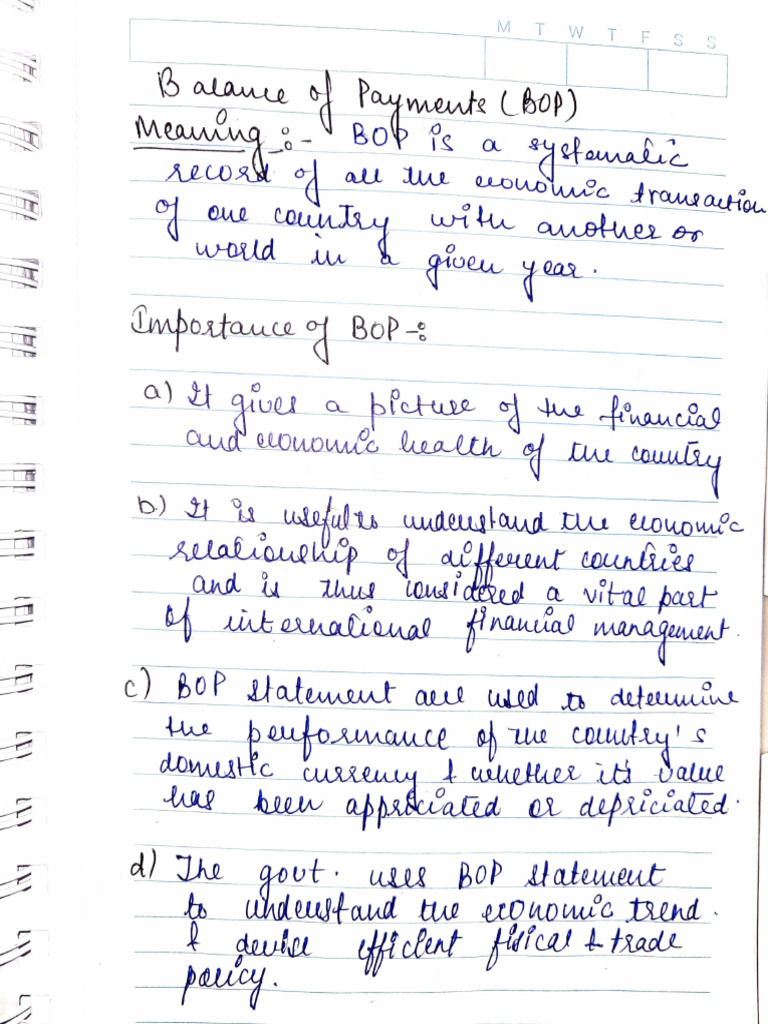 M T W T F S S
Balance of Payments (BOP)
Meaning :- BOP is a systematic
record of all the economic transaction
of one country with another or
world in a given year.
Importance of BOP -:
a) It gives a picture of the financial
and economic health of the country
b) It is useful to understand the economic
relationship of different countries
and is thus considered a vital part
of international financial management.
c) BOP statement are used to determine
the performance of the country's
domestic currency & whether it's value
has been appriciated or depriciated.
d) The govt. uses BOP statement
to understand the economic trend.
& devise efficient fisical & trade
policy.